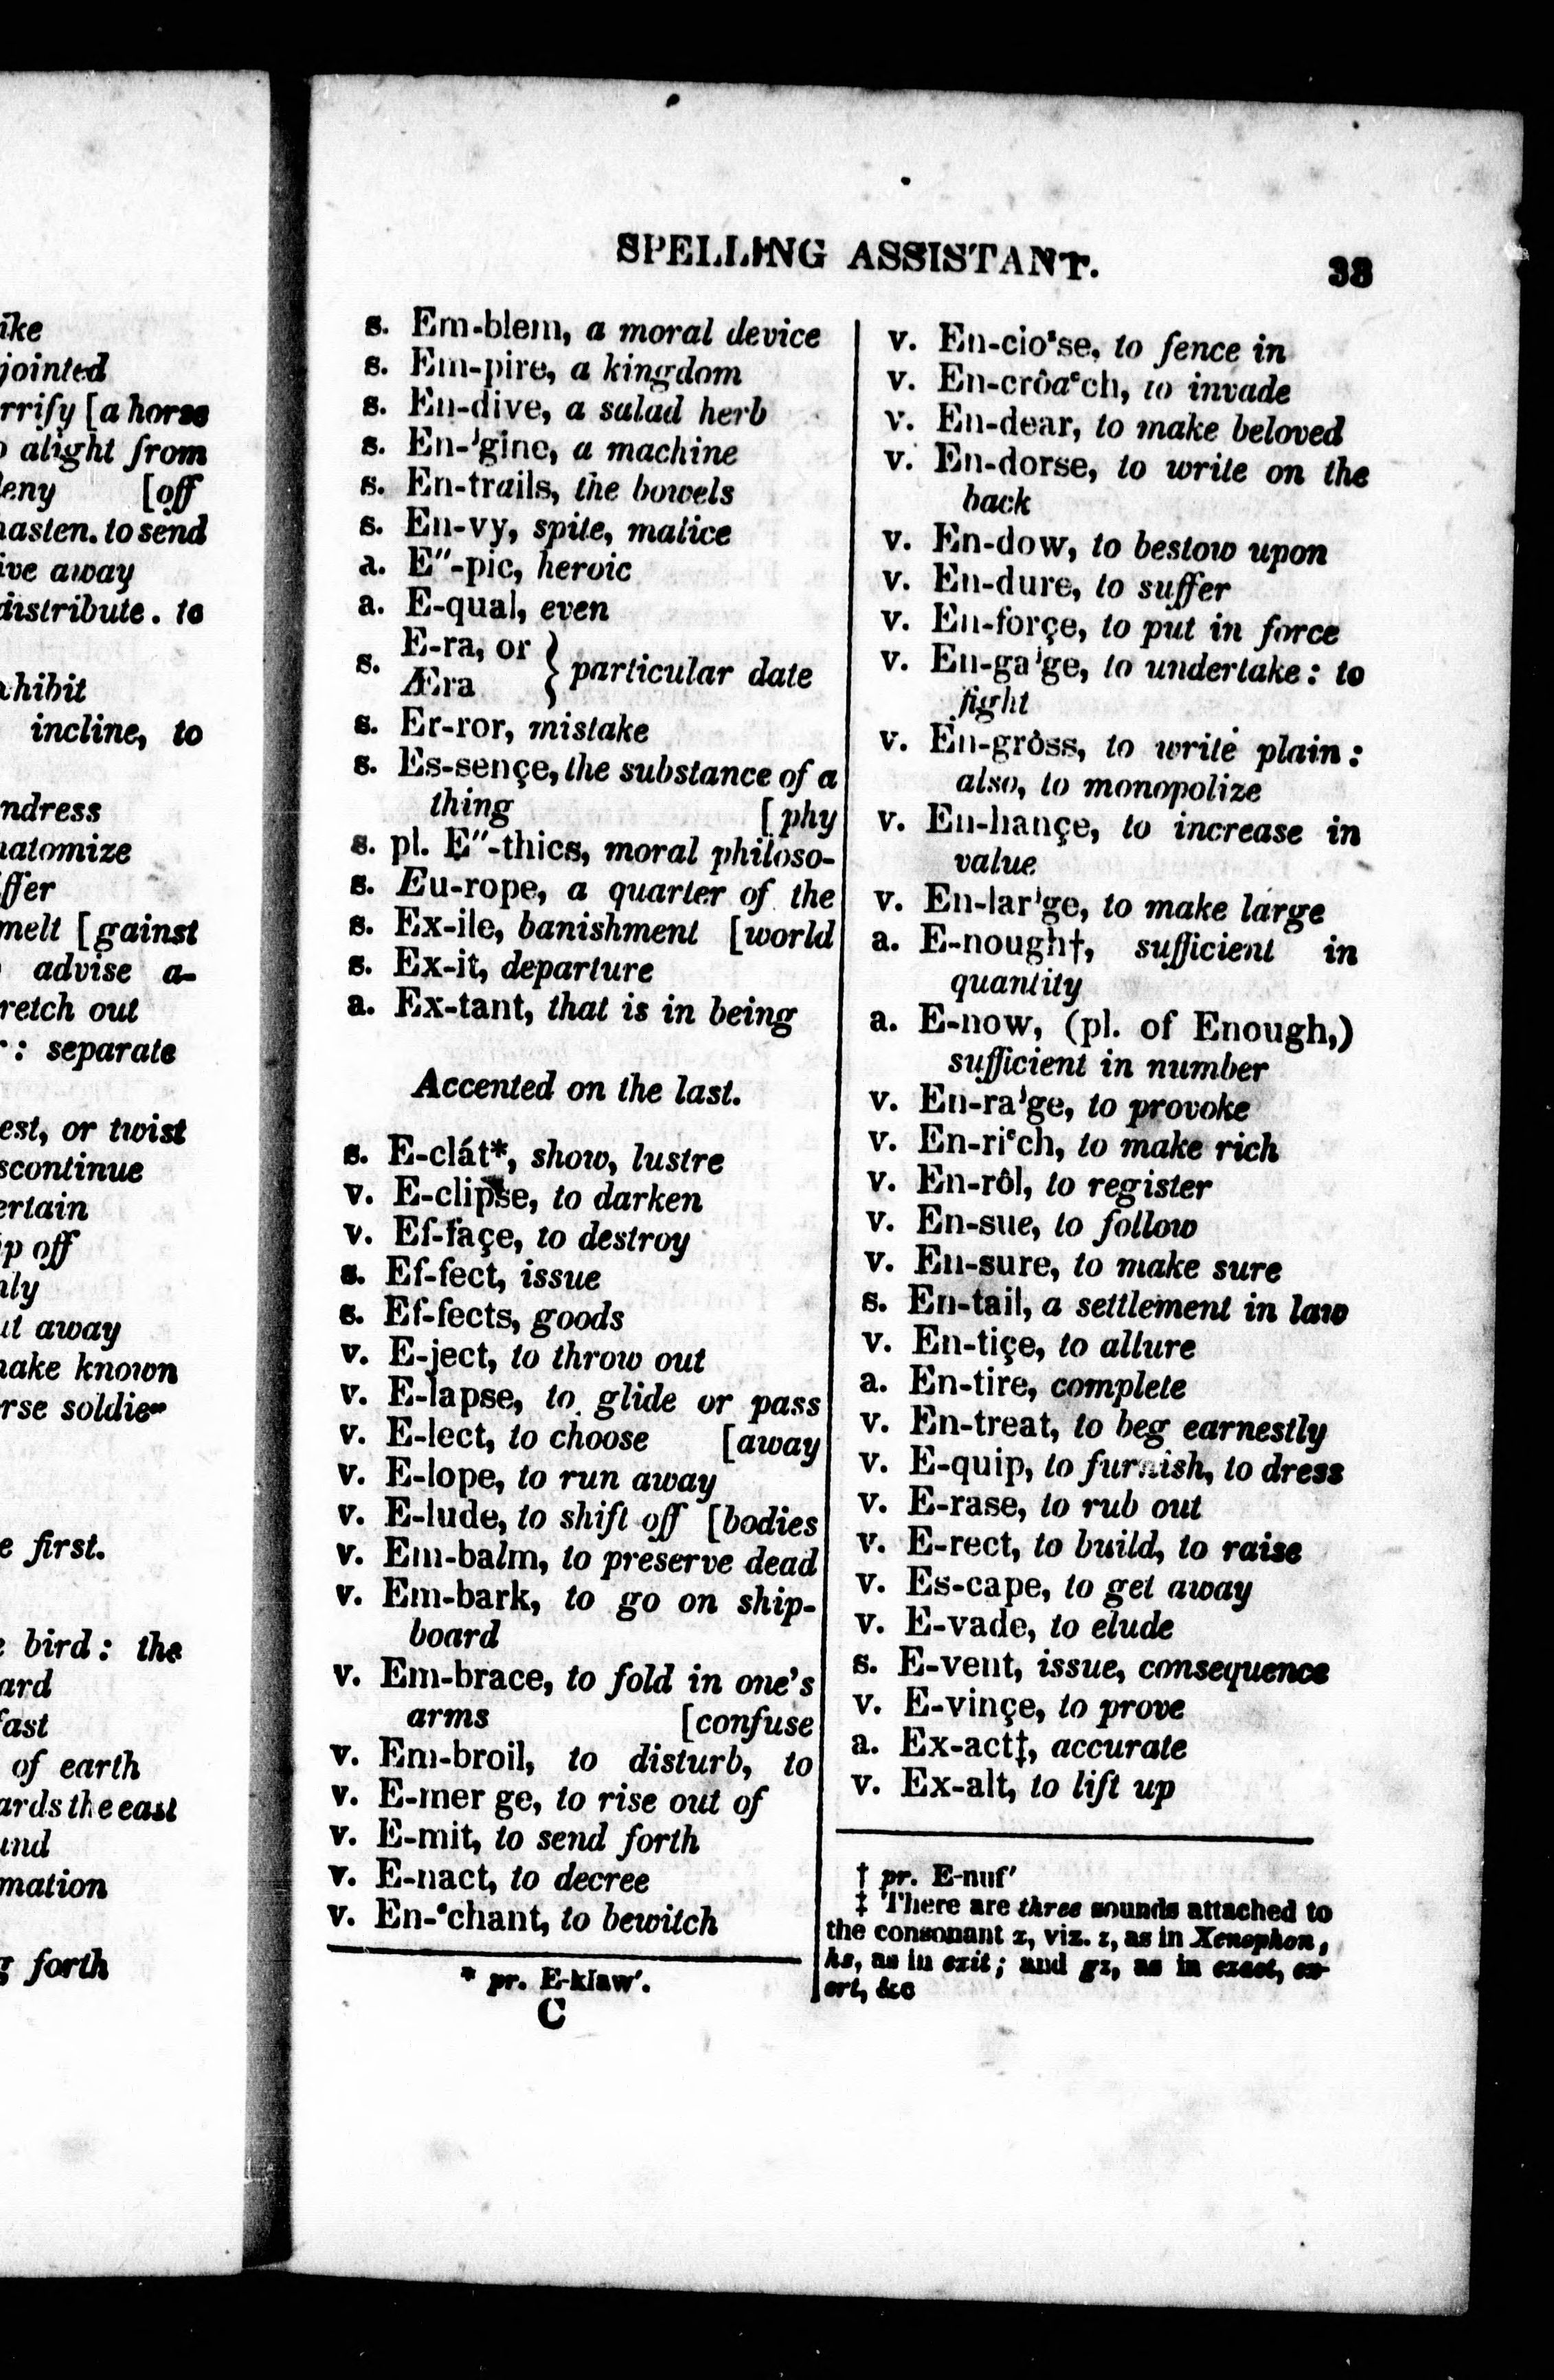 ike
jointed
rrify [a horse
alight from
eny [off
asten. to send
ive away
distribute. to
hibit
incline, to
ndress
natomize
ffer
melt [gainst
advise a-
retch out
: separate
est, or twist
scontinue
ertain
p off
nly
ut away
nake known
rse soldier
e first.
bird: the
ard
fast
of earth
ards the east
und
mation
g forth
SPELLING ASSISTANT. 33
s. Em-blem, a moral device
s. Em-pire, a kingdom
s. En-dive, a salad herb
s. En-ʲgine, a machine
s. En-trails, the bowels
s. En-vy, spite, malice
a. E″-pic, heroic
a. E-qual, even
s. E-ra, or } particular date
Æra
s. Er-ror, mistake
s. Es-sençe, the substance of a
thing [phy
s. pl. E″-thics, moral philoso-
s. Eu-rope, a quarter of the
s. Ex-ile, banishment [world
s. Ex-it, departure
a. Ex-tant, that is in being
Accented on the last.
s. E-clát*, show, lustre
v. E-clipse, to darken
v. Ef-façe, to destroy
s. Ef-fect, issue
s. Ef-fects, goods
v. E-ject, to throw out
v. E-lapse, to glide or pass
v. E-lect, to choose [away
v. E-lope, to run away
v. E-lude, to shift off [bodies
v. Em-balm, to preserve dead
v. Em-bark, to go on ship-
board
v. Em-brace, to fold in one's
arms [confuse
v. Em-broil, to disturb, to
v. E-mer ge, to rise out of
v. E-mit, to send forth
v. E-nact, to decree
v. En-ᶜchant, to bewitch
* pr. E-klaw′.
C
v. En-cloˢse, to fence in
v. En-crôaᶜch, to invade
v. En-dear, to make beloved
v. En-dorse, to write on the
back
v. En-dow, to bestow upon
v. En-dure, to suffer
v. En-forçe, to put in force
v. En-gaʲge, to undertake: to
fight
v. En-grôss, to write plain:
also, to monopolize
v. En-hançe, to increase in
value
v. En-larʲge, to make large
a. E-nough†, sufficient in
quantity
a. E-now, (pl. of Enough,)
sufficient in number
v. En-raʲge, to provoke
v. En-riᶜch, to make rich
v. En-rôl, to register
v. En-sue, to follow
v. En-sure, to make sure
s. En-tail, a settlement in law
v. En-tiçe, to allure
a. En-tire, complete
v. En-treat, to beg earnestly
v. E-quip, to furnish, to dress
v. E-rase, to rub out
v. E-rect, to build, to raise
v. Es-cape, to get away
v. E-vade, to elude
s. E-vent, issue, consequence
v. E-vinçe, to prove
a. Ex-act‡, accurate
v. Ex-alt, to lift up
† pr. E-nuf′
‡ There are three sounds attached to
the consonant x, viz. z, as in Xenophon,
ks, as in exit; and gz, as in exact, ex-
ert, &c